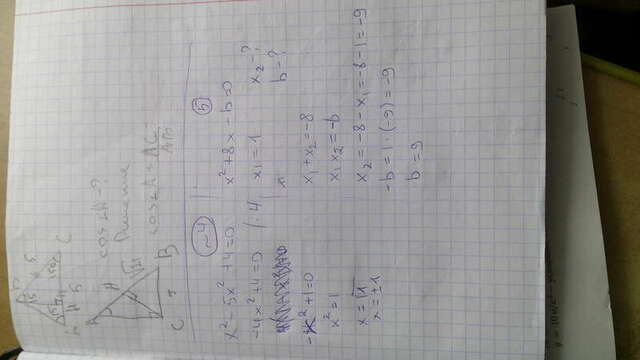 cos∠A-?
Решение
cos∠A = AC/AB
A
C
B
№4
x² - 5x² + 4 = 0
-4x² + 4 = 0 /:4
-x² + 1 = 0
x² = 1
x = √1
x = ±1
5
x² + 8x - b = 0
x₁ = 1
x₂ - ?
b = ?
x₁ + x₂ = -8
x₁ x₂ = -b
x₂ = -8 - x₁ = -8 - 1 = -9
-b = 1 · (-9) = -9
b = 9